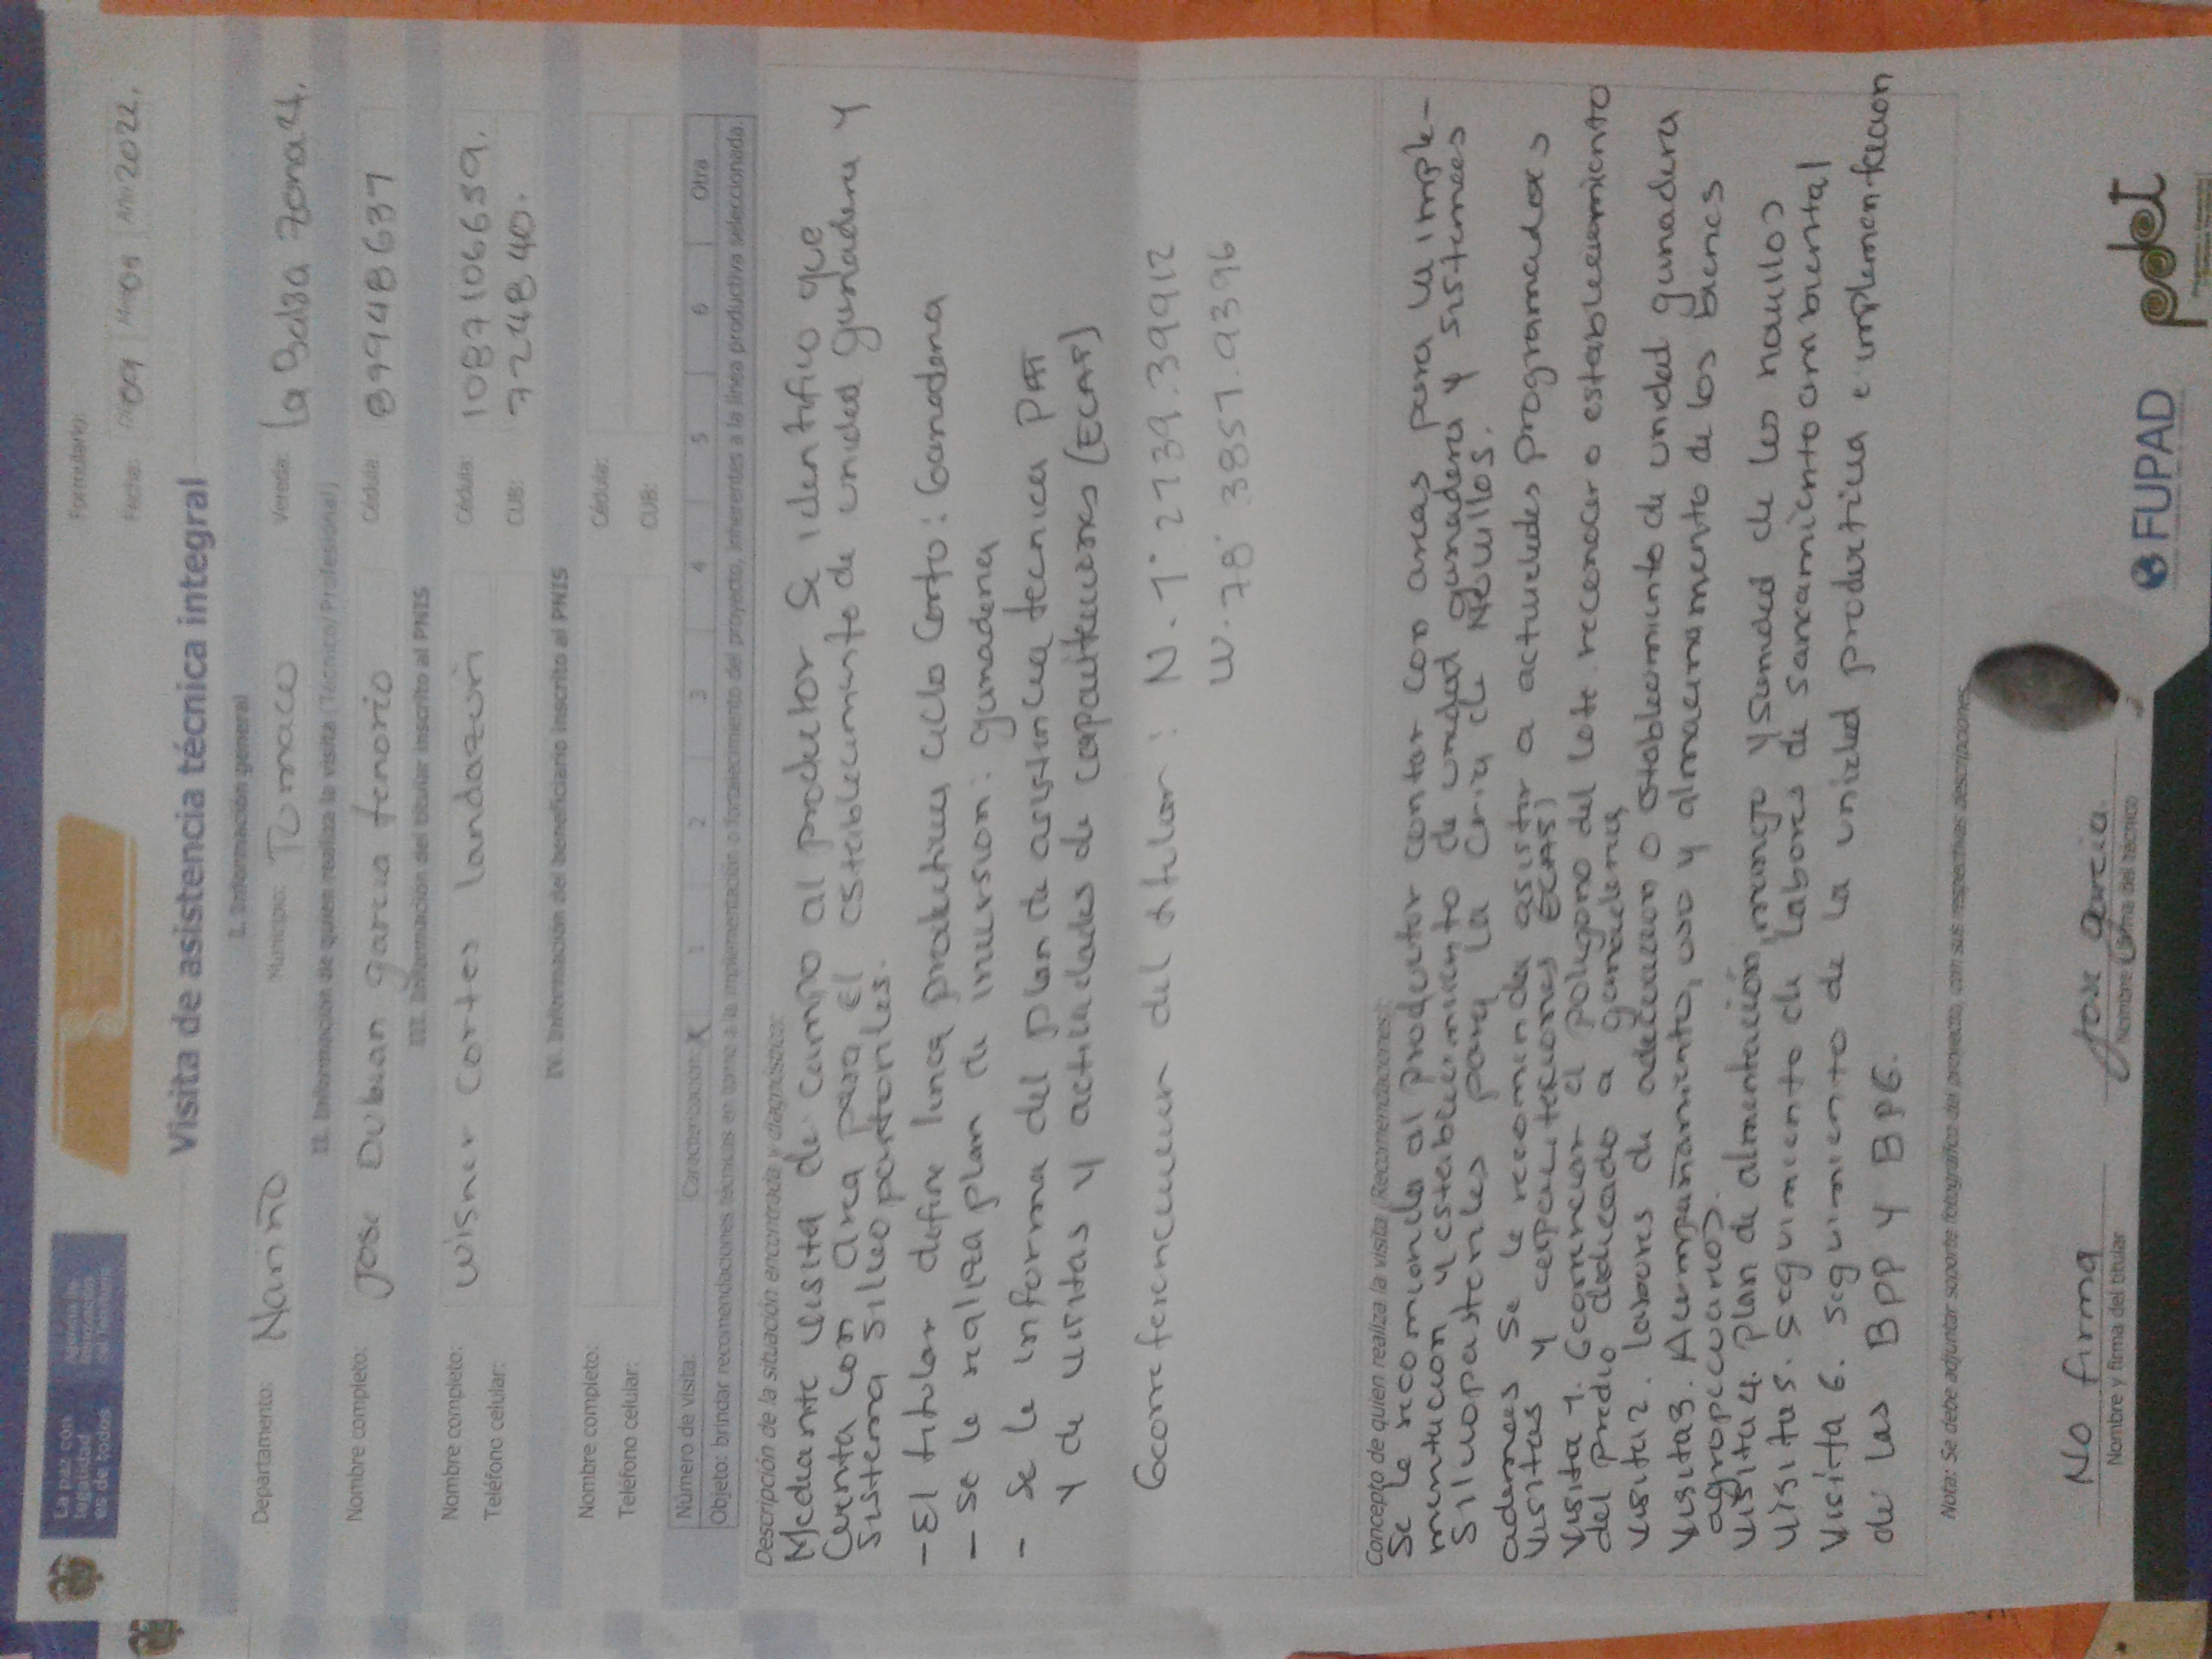 La paz con
legalidad
es de todos
Agencia de
Renovación
del Territorio
Formulario:
Fecha: Día 09 Mes 05 Año 2022.
Visita de asistencia técnica integral
I. Información general
Departamento: Nariño Municipio: Tumaco Vereda: la Balsa zona 24.
II. Información de quien realiza la visita (Técnico/Profesional)
Nombre completo: Jose Dubian garcia tenorio Cédula: 899948637
III. Información del titular inscrito al PNIS
Nombre completo: Wisner Cortes landazuri Cédula: 1087106659.
Teléfono celular: CUB: 724840.
IV. Información del beneficiario inscrito al PNIS
Nombre completo: Cédula:
Teléfono celular: CUB:
Número de visita: Caracterización: X 1 2 3 4 5 6 Otra
Objeto: brindar recomendaciones técnicas en torno a la implementación o fortalecimiento del proyecto, inherentes a la línea productiva seleccionada.
Descripción de la situación encontrada y diagnóstico:
Mediante visita de campo al productor Se identifico que
Cuenta con area para El establecimiento de unidad ganadera y
Sistema silvopastoriles.
- El titular define linea productiva ciclo Corto: Ganadera
- se le realiza plan de inversion: ganadera
- Se le informa del plan de asistencia tecnica PAT
y de visitas y actividades de capacitaciones (ECAP)
Georeferenciacion del titular: N. 1° 27'39.39912
W. 78° 38'57.93396
Concepto de quien realiza la visita (Recomendaciones):
Se le recomienda al productor contar con areas para la imple-
mentacion y establecimiento de unidad ganadera y sistemas
Silvopastoriles para la Cria de Novillos.
ademas se le recomienda asistir a actividades programados
visitas y capacitaciones ECAS)
Visita 1. Georeferenciar el poligono del lote reconocer o establecimiento
del predio dedicado a ganaderia
visita 2. labores de adecuacion o establecimiento de unidad ganadera
Visita 3. Acompañamiento, uso y almacenamiento de los bienes
agropecuarios.
Visita 4. plan de alimentación, manejo y sanidad de los novillos
Visita 5. Seguimiento de labores de saneamiento ambiental
Visita 6. seguimiento de la unidad productiva e implementacion
de las BPP y BPG.
Nota: Se debe adjuntar soporte fotográfico del proyecto, con sus respectivas descripciones
No firma
Nombre y firma del titular
Jose garcia.
Nombre y firma del técnico
FUPAD
pdet